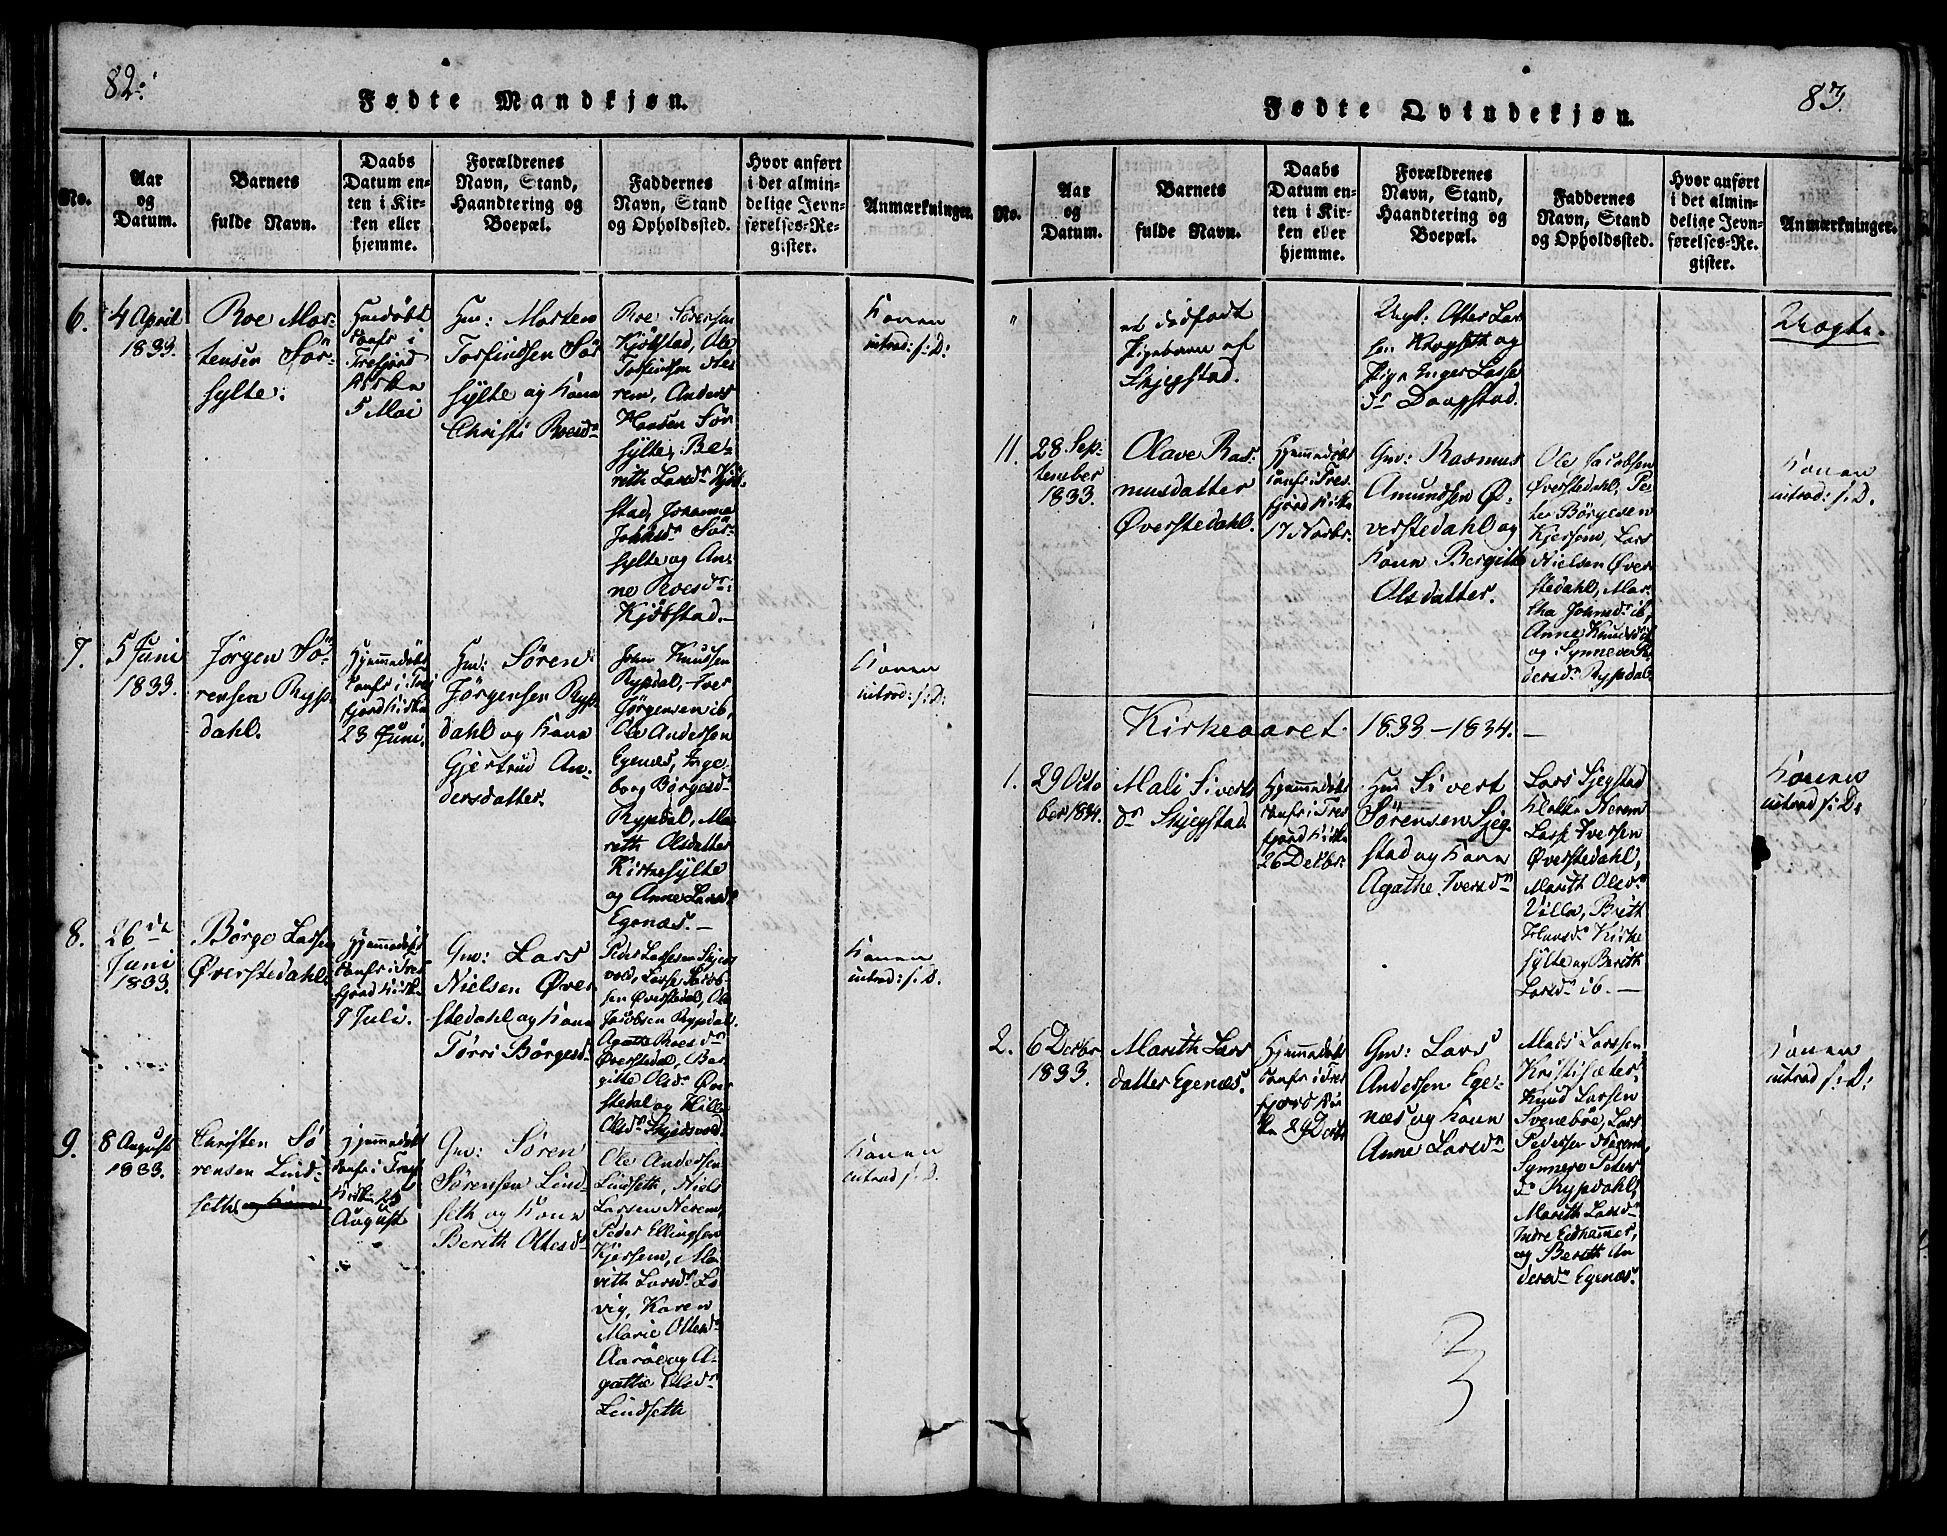 82.
Fødte Mandkjøn.
No.
Aar
og
Datum.
Barnets
fulde Navn.
Daabs
Datum en-
ten i Kir-
ken eller
hjemme.
Forældrenes
Navn, Stand,
Haandtering og
Boepæl.
Faddernes
Navn, Stand
og Opholdssted.
Hvor anført
i det almin-
delige Jevn-
førelses-Re-
gister.
Anmærkninger.
6.
4 April
1833.
Roe Mor-
tensen Sör-
sylte.
Hmdøbt
confr i
Trefjord
Kirke
5 Mai
Gm: Morten
Torfindsen Sör
sylte og Kone
Christi Roesdr
Roe Sörensen
Kjöbstad, Ole
Torfindsen Ne-
rem, Anders
Hansen Sör
sylte, Be-
reth Larsdr Kjöb-
stad, Johanna
Johnsdr Sör-
sylte og An-
ne Roesdr:
Kjöbstad.-
Konen
introd: s: D:
7.
5 Juni
1833.
Jörgen Sö-
rensen Ryp-
dahl.
Hjemmedöbt
confr i Tres
fjord Kirke
23 Juni.
Gm: Sören
Jörgensen Ryp-
dahl og Kone
Gjertrud An-
dersdatter.
John Knudsen
Rypdal, Iver
Jörgensen ib,
Ole Andersen
Egenæs, Inge-
borg Börgesdr
Rypdal, Ma-
reth Olsdatter
Kirkesylte
og Anne Larsdr
Egenæs.-
Konen
introd: s: D:
8.
26 de
Juni
1833.
Börge Larsen
Øverstedahl.
Hjemmedöbt
confr i Tres
fjord Kirke
7 Juli.
Gm: Lars
Nielsen Øver
stedahl og Kone
Törri Börgesdr
Peder Larsen Skjeds
vold, Lasse Jacob-
sen Øverstedal, Ole
Jacobsen Rypdal.
Agathe Roesdr
Øverstedal, Ber
gitte Olsdr Øver
stedal og Kille
Olsdr Skjedsvold.
Konen
introd: s: D.
9.
8 August
1833.
Christen Sö
rensen Lind-
seth og Kone
Hjemmedöbt
confr i Tresf
Kirke 25
August
Gm: Sören
Sörensen Lind-
seth og Kone
Berith Ottesdr
Ole Andersen
Lindseth, Niels
Larsen Nerem,
Peder Ellingsen
Kjersem, Ma-
reth Larsdr Lo-
vig, Karen
Marie Ottesdr
Aaröe og A-
gathe Olsdr
Lindseth
Konen
introd: s: D.
83.
Fødte Qvindekjøn.
No.
Aar
og
Datum.
Barnets
fulde Navn.
Daabs
Datum en-
ten i Kir-
ken eller
hjemme.
Forældrenes
Navn, Stand,
Haandtering og
Boepæl.
Faddernes
Navn, Stand
og Opholdssted.
Hvor anført
i det almin-
delige Jevn-
førelses-Re-
gister.
Anmærkninger.
"
et dødfødt
Pigebarn af
Skjegstad.
Ungk: Otter Lar
sen Krogseth og
Pige Inger Lasse
dr Dougstad.
Uægte.
11.
28 Sep-
tember
1833.
Olave Ras-
musdatter
Øverstedahl.
Hjemmedöbt
confr i Tres
fjord Kirke
17 Novbr.
Gm: Rasmus
Amundsen Ø-
verstedahl og
Kone Bergitte
Olsdatter.
Ole Jacobsen
Øverstedahl, Pe-
ter Börgesen
Kjersem, Lars
Nielsen Øver
stedahl, Mar-
tha Johnsdr ib,
Anne Knudsdr ib
og Synnever Pe
dersdr Rypdal.
Konen
introd: s: D.
Kirkeaaret 1833-1834.-
1.
29 Octo
ber 1834.
Mali Siverts
dr Skjegstad.
Hjemmedöbt
confr i Tres
fjord Kirke
26 Decbr.
Gm Sivert
Sörensen Sjeg-
stad og Kone
Agathe Iversdr
Lars Sjegstad
Nerem
Lasse Iversen
Øverstedahl,
Marith Olsdr
Villa, Brith
Hansdr Kirke
sylte og Berith
Larsdr ib.-
Konen
introd s: D:
2.
6 Decbr
1833.
Marith Lars
datter Egenæs.
Hjemmedöbt
confr i Tres
fjord Kir
ke 29 Decbr
Gm: Lars
Andersen Ege-
næs og Kone
Anne Larsdr
Mads Larssen
Kristisæter,
Knud Larsen
Svenebøe, Lars
Pedersen Nerem,
Synnero Peters
dr Rypdahl,
Marith Larsdr
Indre Eidhammer,
og Berith An
dersdr Egenæs.
Konen
introd s: D:
3